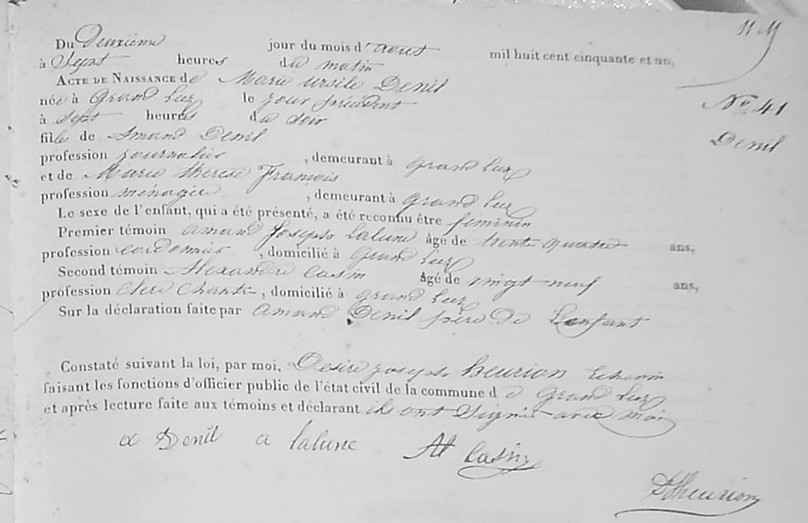 11 M
Du Deuxième jour du mois d'aout mil huit cent cinquante et un,
à Sept heures du matin
ACTE DE NAISSANCE de Marie ursile Denil
née à Grand leez le jour précédent
à Sept heures du Soir
N° 41
Denil
fille de Amand Denil
profession journalier, demeurant à Grand leez
et de Marie therese François
profession ménagère, demeurant à Grand leez
Le sexe de l'enfant, qui a été présenté, a été reconnu être féminin
Premier témoin amand joseph lalune âgé de trente quatre ans,
profession cordonnier, domicilié à Grand leez
Second témoin Alexandre Casin âgé de vingt neuf ans,
profession clerc chantre, domicilié à Grand leez
Sur la déclaration faite par amand Denil père de Lenfant
Constaté suivant la loi, par moi, Desiré joseph heurion Echevin
faisant les fonctions d'officier public de l'état civil de la commune d e Grand leez
et après lecture faite aux témoins et déclarant ils ont Signé avec moi
a Denil a lalune Al Casin
D heurion